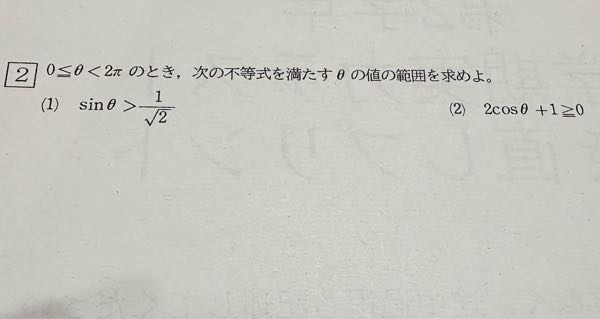 2 0≦θ<2π のとき，次の不等式を満たす θ の値の範囲を求めよ。
(1) sinθ > 1/√2 (2) 2cosθ +1≧0